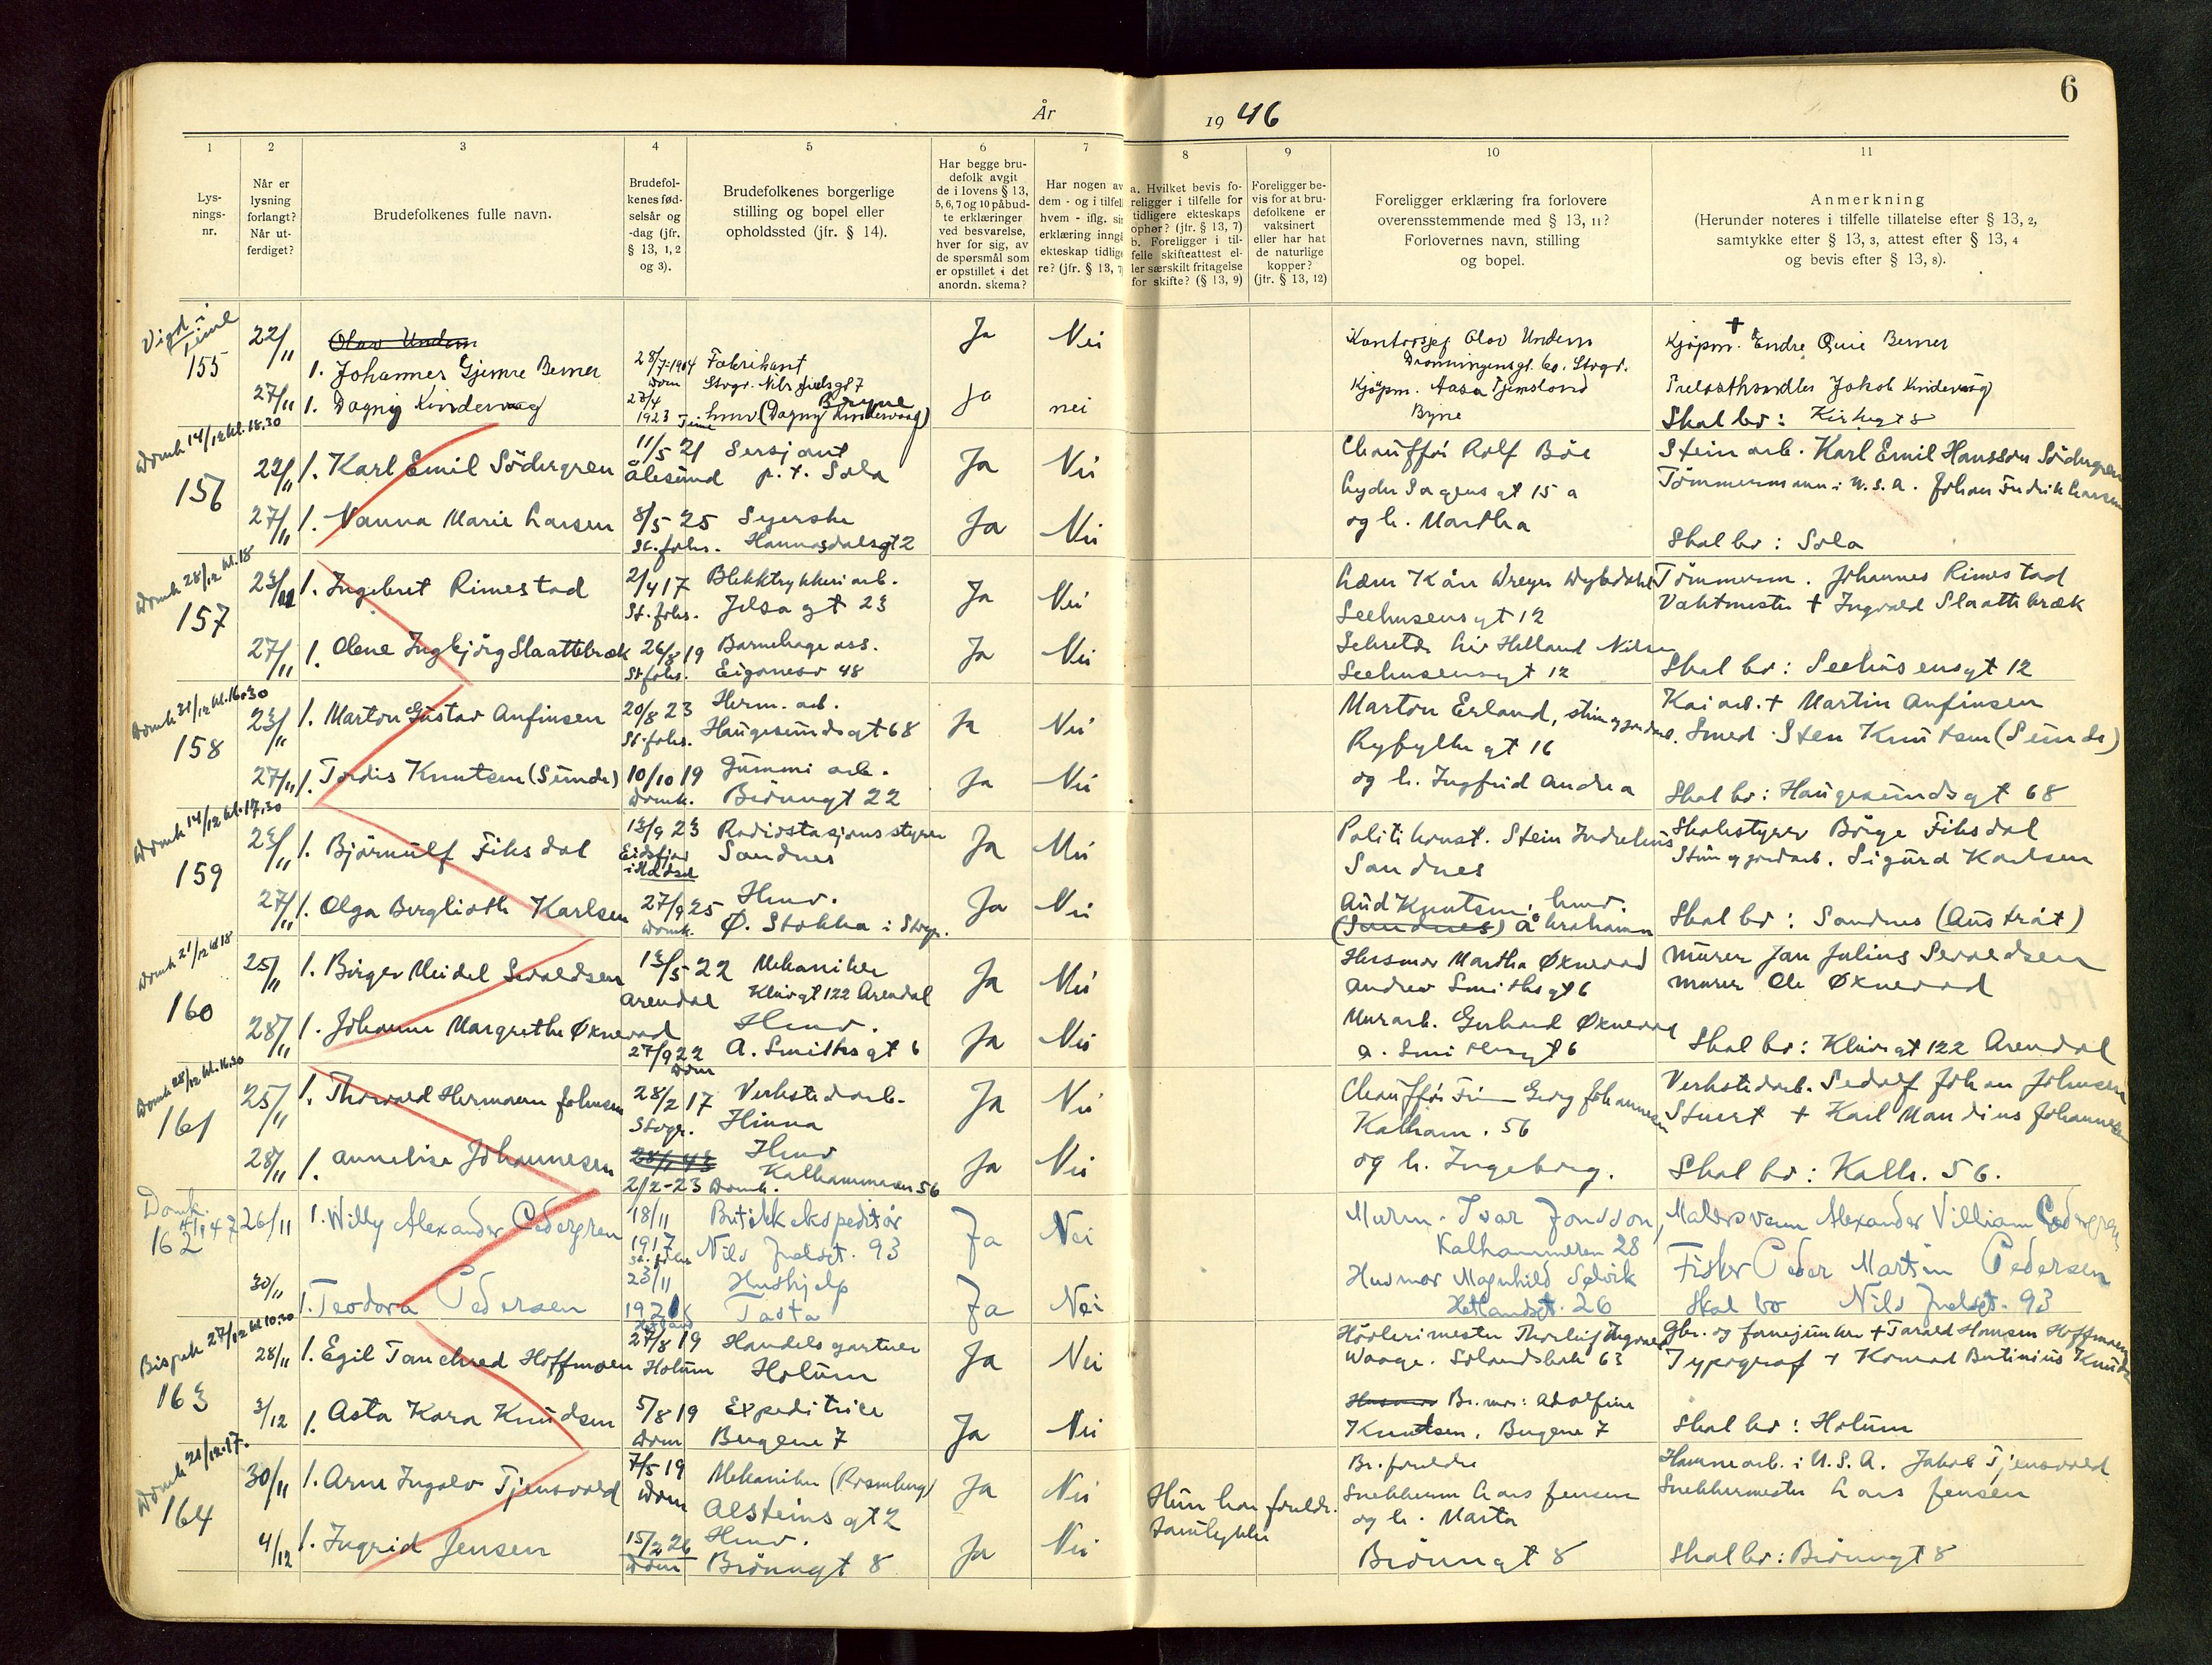 År 1946
6
1
Lys-
nings-
nr.
2
Når er
lysning
forlangt?
Når ut-
ferdiget?
3
Brudefolkenes fulle navn.
4
Brudefol-
kenes fød-
selsår og
-dag (jfr.
§ 13, 1, 2
og 3).
5
Brudefolkenes borgerlige
stilling og bopel eller
opholdssted (jfr. § 14).
6
Har begge bru-
defolk avgit
de i lovens § 13,
5, 6, 7 og 10 påbud-
te erklæringer
ved besvarelse,
hver for sig, av
de spørsmål som
er opstillet i det
anordn. skema?
7
Har nogen av
dem - og i tilfell
hvem - iflg. sin
erklæring inngå
ekteskap tidlige
re? (jfr. § 13, 7
8
a. Hvilket bevis fo-
religger i tilfelle for
tidligere ekteskaps
ophør? (jfr. § 13, 7)
b. Foreligger i til-
felle skifteattest el-
ler særskilt fritagelse
for skifte? (§ 13, 9)
9
Foreligger be-
vis for at bru-
defolkene er
vaksinert
eller har hat
de naturlige
kopper?
(jfr. § 13, 12)
10
Foreligger erklæring fra forlovere
overensstemmende med § 13, 11?
Forlovernes navn, stilling
og bopel.
11
Anmerkning
(Herunder noteres i tilfelle tillatelse efter § 13, 2,
samtykke efter § 13, 3, attest efter § 13, 4
og bevis efter § 13, 8).
Vigd i
Time
155
22/11
Olav Undem
1. Johannes Gjemre Berner
28/7-1904
Dom
Fabrikant
Stvgr. Nils Juelsgt 7
Ja
Nei
Kontorsjef Olav Undem
Dronningensgt. 60. Stvgr.
Kjøpm. Endre Quie Berner
27/11
1. Dagny Kindervaag
27/4
1923 Time
Bryne
hmv (Dagny Kindervaag)
Ja
nei
Kjøpm. Aasa Tjemsland
Bryne
Jakob Kindervaag
Skal bo: Kirkegt 8
Domk 14/12 kl. 18.30
156
22/11
1. Karl Emil Södergren
11/5 21
Ålesund
Sersjant
p. t. Sola
Ja
Nei
Chauffør Rolf Bøe
Lyder Sagens gt 15 a
Stein arb. Karl Emil Hansson Södergren
Tömmermann i U.S.A. Johan Fredrik Larsen
27/11
1. Nanna Marie Larsen
8/5 25
St. Johs.
Syerske
Hannasdalsgt 2
Ja
Nei
og h. Martha
Skal bo: Sola
Domk 28/12 kl. 18
157
23/11
1. Ingebret Rimestad
2/4 17
St. Johs.
Blikktrykkeri arb.
Jelsa gt 23
Ja
Nei
Seehusensgt 12
Tömmerm. Johannes Rimestad
Vaktmester + Ingvald Slaattebræk
27/11
1. Olene Ingbjörg Slaattebræk
26/8 19
St. Johs.
Barnehage ass.
Eiganesv 48
Ja
Nei
Sekretær Liv Helland Nilsen
Seehusensgt 12
Skal bo: Seehusensgt 12
Domk 21/12 kl. 16.30
158
23/11
1. Marton Gustav Anfinsen
20/8 23
St. Johs.
Herm. arb.
Haugesundsgt 68
Ja
Nei
Marton Erland,
Ryfylke gt 16
Kai arb. + Martin Anfinsen
Smed Sten Knutsen (Sunde)
27/11
1. Tordis Knutsen (Sunde)
10/10 19
Domk.
Gummi arb.
Brönngt 22
Ja
Nei
og h. Ingfrid Andrea
Skal bo: Haugesundsgt 68
Domk 14/12 kl. 17.30
159
23/11
1. Björnulf Fiksdal
13/9 23
Eidsfjor
i Hadsel
Radiostasjons styrer
Sandnes
Ja
Nei
Politikonst. Stein Indrehus
Sandnes
Skolestyrer Börge Fiksdal
Stein og jordarb. Sigurd Karlsen
27/11
1. Olga Berglioth Karlsen
27/9 25
Domk.
Hmv.
Ø. Stokka i Stvgr.
Ja
Nei
Aud Knutsen, hmv.
(Sandnes)
Skal bo: Sandnes (Austråt)
Domk 21/12 kl 18
160
25/11
1. Birger Meidel Sevaldsen
13/5 22
Arendal
Mekaniker
Kløvgt 122 Arendal
Ja
Nei
Husmor Martha Øknevad
Andrew Smithsgt 6
Murer Jan Julius Sevaldsen
Murer Ole Øknevad
28/11
1. Johanne Margrethe Øknevad
27/9 22
Dom
Hmv.
A. Smithsgt 6
Ja
Nei
Murarb. Gerhard Øknevad
A. Smithsgt 6
Skal bo: Kløvgt 122 Arendal
Domk 28/12 kl. 16.30
161
25/11
1. Thorvald Hermann Johnsen
28/2 17
Stvgr.
Verkstedarb.
Hinna
Ja
Nei
Chauffør Finn Georg Johannesen
Kalham. 56
Verkstedarb. Sedolf Johan Johnsen
Stuert + Karl Mandius Johannesen
28/11
1. Annelise Johannesen
2/2-23 Domk.
Hmv
Kalhammeren 56
Ja
Nei
og h. Ingeborg.
Skal bo: Kalh. 56.
Domk.
4/1 47
162
26/11
1. Willy Alexander Cedergren
18/11
1917
St. Johs
Butikkekspeditør
Nils Juelsgt. 93
Ja
Nei
Murm. Ivar Jonsson,
Kalhammeren 28
Malersvenn Alexander Villiam Cedergren
30/11
1. Teodora Pedersen
23/11
1921
Hetland
Hushjelp
Tasta
Ja
Nei
Husmor Magnhild Selvik
Hetlandsgt. 26
Fisker Peder Martin Pedersen
Skal bo Nils Juelsgt. 93
Bispek 27/12 kl 10.30
163
28/11
1. Egil Tanchred Hoffmoen
27/8 19
Holum
Handelsgartner
Holum
Ja
Nei
Waage. Solandsbak 63
Gbr. og + Tarald Hansen Hoffmoen
Typograf + Konrad Knudsen
3/12
1. Asta Kara Knudsen
5/8 19
Dom
Expeditrise
Bergene 7
Ja
Nei
Husmor Br. mor: Adolfine
Knudsen, Bergene 7
Skal bo: Holum
Domk 21/12-17.
164
30/11
1. Arne Ingolv Tjensvold
7/5 19
Dom
Mekaniker (Rosenberg)
Alsteins gt 2
Ja
Nei
Hun har foreldr.
samtykke
Br. foreldre
Snekkerm Lars Jensen
og h. Marta
Havnearb. i U.S.A. Jakob Tjensvold
Snekkermester Lars Jensen
4/12
1. Ingrid Jensen
15/2 26
Dom
Hmv.
Brönngt 8
Ja
Nei
Brönngt 8
Skal bo: Brönngt 8